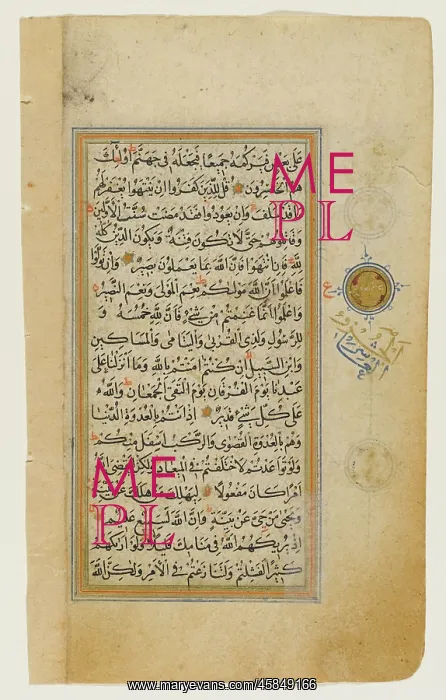 على بعض فيركمه جميعا فيجعله في جهنم أولئك
هم الخاسرون قل للذين كفروا ان ينتهوا يغفر لهم
ما قد سلف وان يعودوا فقد مضت سنت الاولين
وقاتلوهم حتى لا تكون فتنة ويكون الدين كله
لله فان انتهوا فان الله بما يعملون بصير وان تولوا
فاعلموا ان الله موليكم نعم المولى ونعم النصير
واعلموا انما غنمتم من شيء فان لله خمسه و
للرسول ولذي القربى واليتامى والمساكين
وابن السبيل ان كنتم امنتم بالله وما انزلنا على
عبدنا يوم الفرقان يوم التقى الجمعان والله
على كل شيء قدير اذ انتم بالعدوة الدنيا
وهم بالعدوة القصوى والركب اسفل منكم
ولو تواعدتم لاختلفتم في الميعاد ولكن ليقضي الله
امرا كان مفعولا ليهلك من هلك عن بينة
ويحيى من حي عن بينة وان الله لسميع عليم
اذ يريكهم الله في منامك قليلا ولو اريكهم
كثيرا لفشلتم ولتنازعتم في الامر ولكن الله
ME
PL
ME
PL
www.maryevans.com/45849166